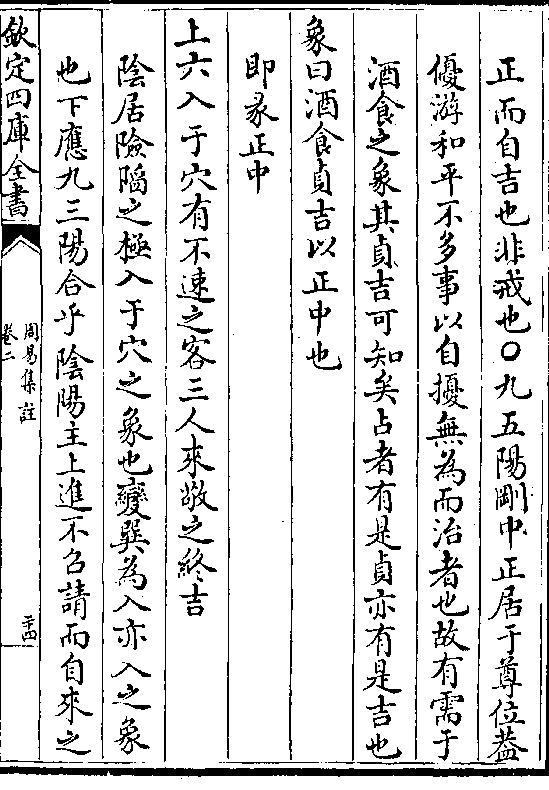 正而自吉也非戒也○九五陽剛中正居于尊位葢
優游和平不多事以自擾無為而治者也故有需于
酒食之象其貞吉可知矣占者有是貞亦有是吉也
象曰酒食貞吉以正中也
即彖正中
上六入于穴有不速之客三人來敬之終吉
陰居險陷之極入于穴之象也變巽為入亦入之象
也下應九三陽合乎陰陽主上進不召請而自來之
欽定四庫全書
周易集註
卷二
二十四